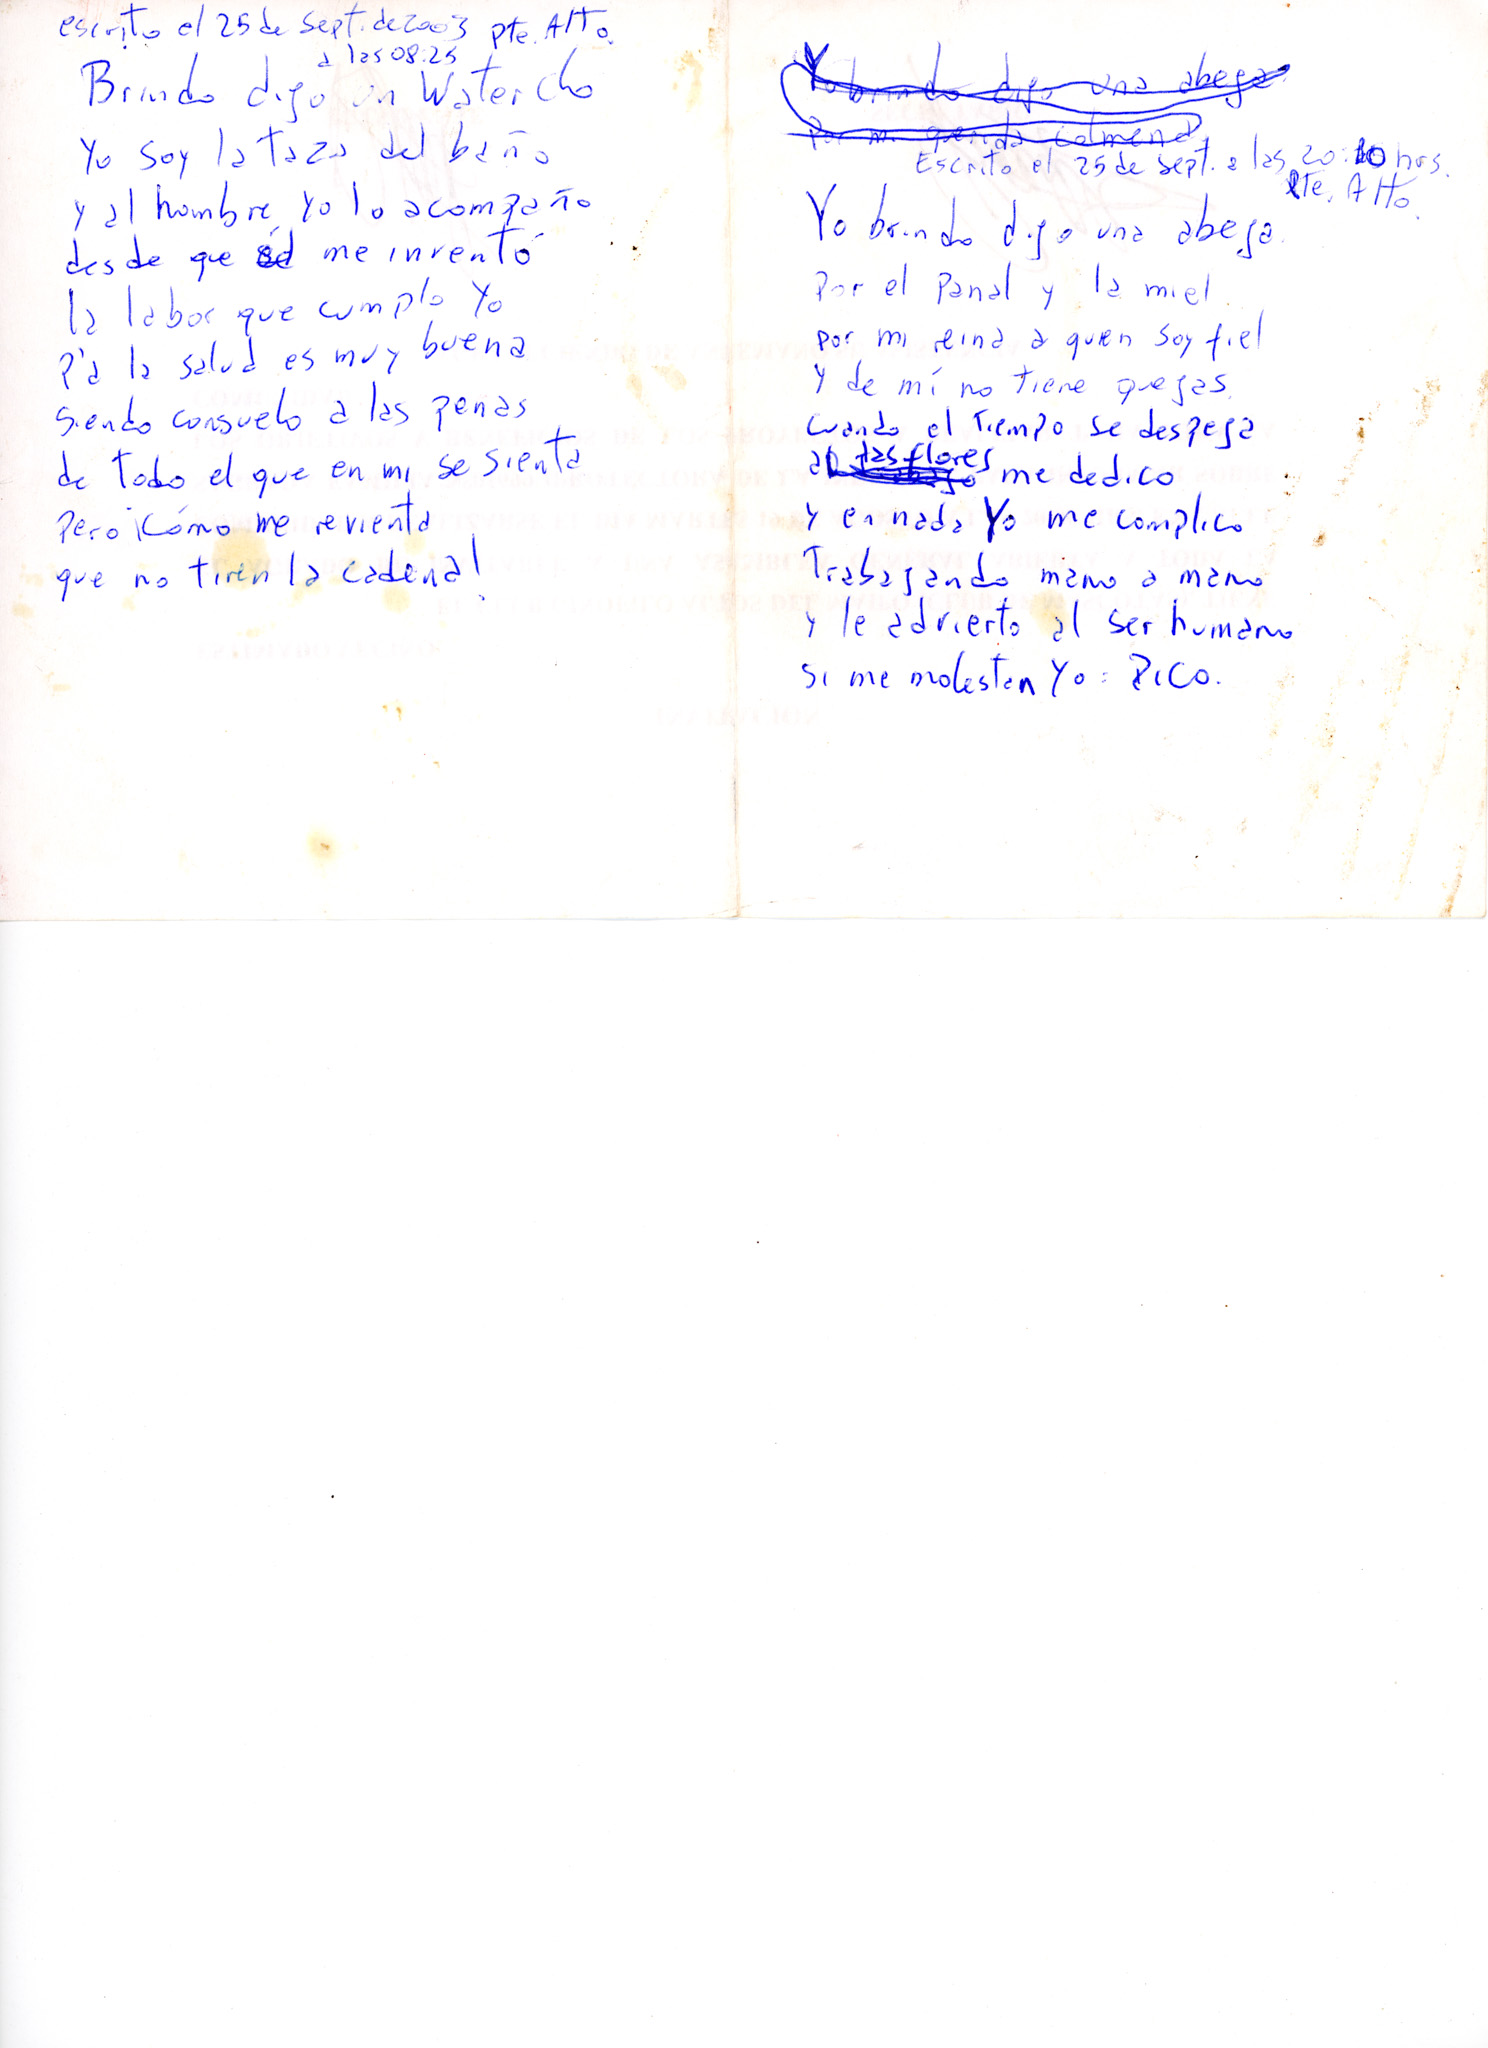 escrito el 25 de Sept. de 2003 Pte. Alto.
a las 08:25
Brindo dijo un Watercló
Yo soy la taza del baño
y al hombre, yo lo acompaño
desde que él me inventó
la labor que cumplo yo
p'a la salud es muy buena
siendo consuelo a las penas
de todo el que en mi se sienta
pero ¡Cómo me revienta
que no tiren la cadena!
Yo brindo dijo una abeja
Por mi querida colmena
Escrito el 25 de Sept. a las 20:10 hrs.
Pte. Alto.
Yo brindo dijo una abeja
por el panal y la miel
por mi reina a quien soy fiel
y de mí no tiene quejas.
Cuando el tiempo se despeja
a las flores me dedico
y en nada yo me complico
Trabajando mano a mano
y le advierto al ser humano
si me molestan yo: Pico.